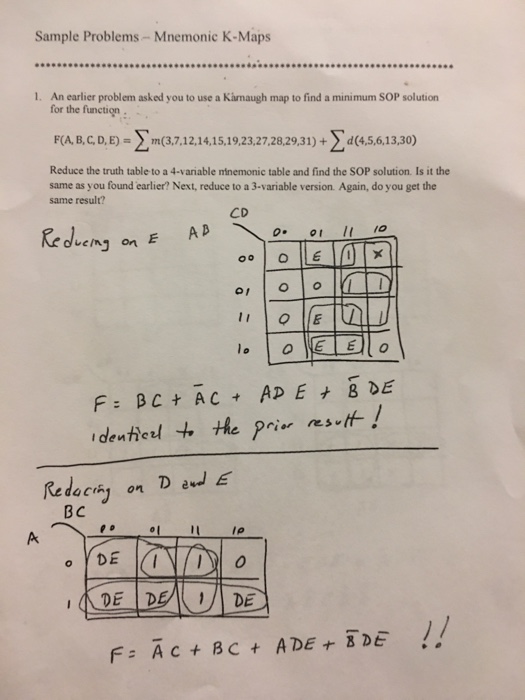 Sample Problems – Mnemonic K-Maps
1. An earlier problem asked you to use a Karnaugh map to find a minimum SOP solution
for the function
F(A, B, C, D, E) = ∑ m(3,7,12,14,15,19,23,27,28,29,31) + ∑ d(4,5,6,13,30)
Reduce the truth table to a 4-variable mnemonic table and find the SOP solution. Is it the
same as you found earlier? Next, reduce to a 3-variable version. Again, do you get the
same result?
Reducing on E
CD
AB
00 01 11 10
00 0 E 1 X
01 0 0 1 1
11 0 E 1 1
10 0 E E 0
F = BC + A̅C + ADE + B̅DE
identical to the prior result!
Reducing on D and E
BC
A
00 01 11 10
0 DE 1 1 0
1 DE DE 1 DE
F = A̅C + BC + ADE + B̅DE !!